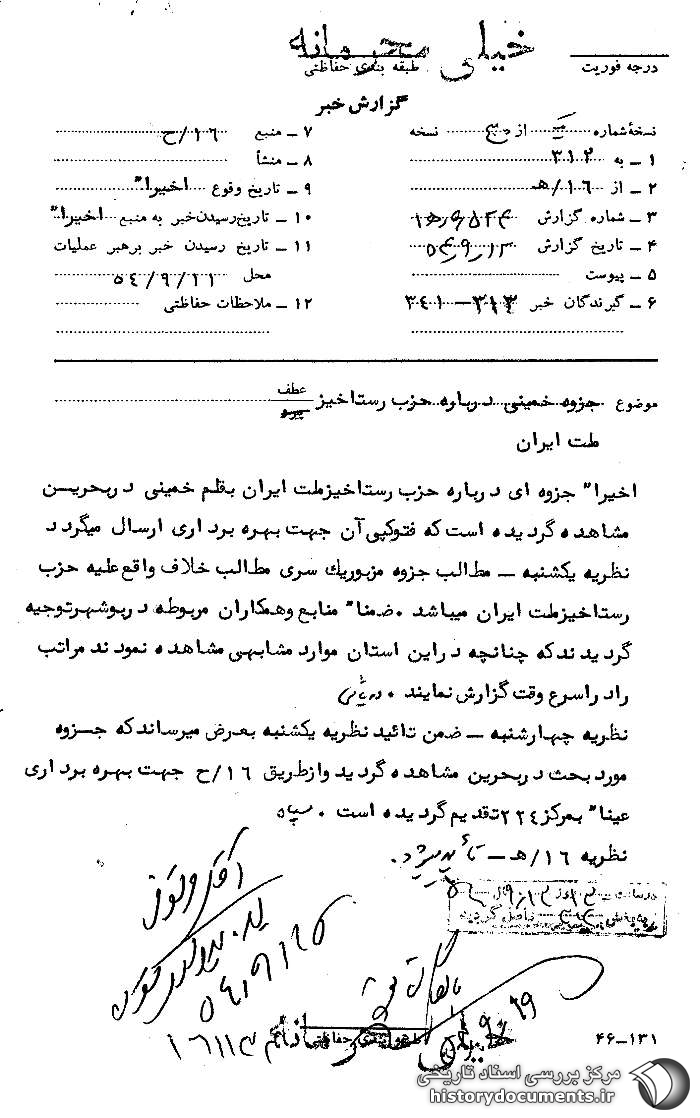 خیلی محرمانه
درجه فوریت
طبقه بندی حفاظتی
گزارش خبر
نسخهٔ شماره یک از نسخه
۱ ـ به ۳۱۲
۲ ـ از ۱۶/هـ
۳ ـ شماره گزارش
۴ ـ تاریخ گزارش
۵ ـ پیوست
۶ ـ گیرندگان خبر ۳۱۲ ـ ۳۴۱
۷ ـ منبع ۱۶/ح
۸ ـ منشأ
۹ ـ تاریخ وقوع اخیرا"
۱۰ ـ تاریخ رسیدن خبر به منبع اخیرا"
۱۱ ـ تاریخ رسیدن خبر برهبر عملیات
محل ۵۴/۹/۱۱
۱۲ ـ ملاحظات حفاظتی
موضوع جزوه خمینی درباره حزب رستاخیز عطف
پیرو
ملت ایران
اخیرا" جزوه ای درباره حزب رستاخیزملت ایران بقلم خمینی دربحریـن
مشاهده گردیده است که فتوکپی آن جهت بهره برداری ارسال میگردد
نظریه یکشنبه ـ مطالب جزوه مزبوریك سری مطالب خلاف واقع علیه حزب
رستاخیزملت ایران میباشد . ضمنا" منابع وهمکاران مربوطه دربوشهرتوجیه
گردیدندکه چنانچه دراین استان موارد مشابهی مشاهده نمودند مراتب
رادراسرع وقت گزارش نمایند .
نظریه چهارشنبه ـ ضمن تائید نظریه یکشنبه بعرض میرساندکه جـزوه
مورد بحث دربحرین مشاهده گردید وازطریق ۱۶/ح جهت بهره برداری
عینا" بمرکز ۲۲۴تقدیم گردیده است . سپاه
نظریه ۱۶/هـ ـ تأیید میشود.
بایگانی شود
طبقه بندی حفاظتی
۴۶ـ۱۳۱
مرکز بررسی اسناد تاریخی
historydocuments.ir